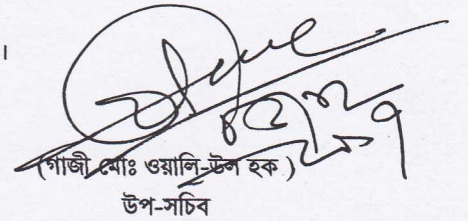 ।
(গাজী মোঃ ওয়ালি-উল হক )
উপ-সচিব